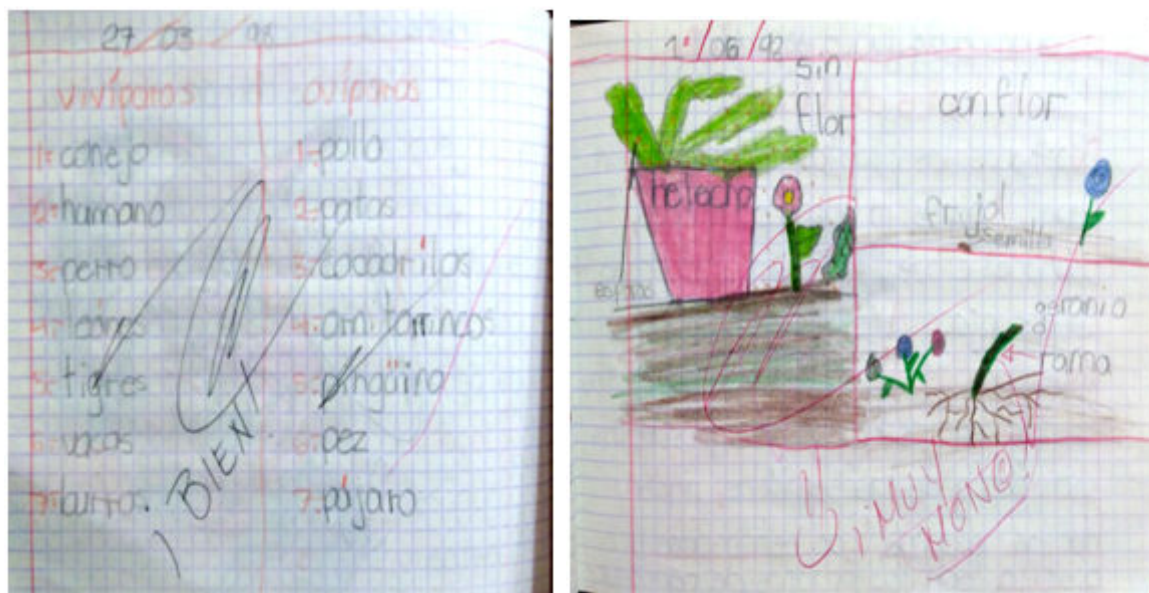 27/03/98
vivíparos
1: conejo
2: humano
3: perro
4: leones
5: tigres
6: vacas
7: burros
¡BIEN!
ovíparos
1: pollo
2: patos
3: cocodrilos
4: ornitorrincos
5: pingüino
6: pez
7: pájaro
1°/06/92
sin
flor
helecho
con flor
frijol
semilla
geranio
rama
¡MUY
MONO!